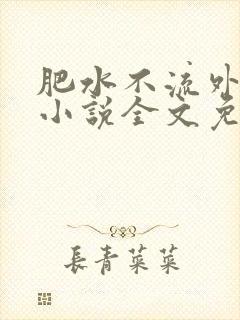 肥水不流外
小說全文免
長青菜菜